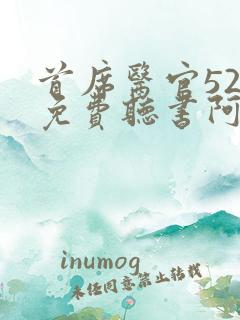 首席醫官52
免費聽書阿
inumog
未任同意禁止转载